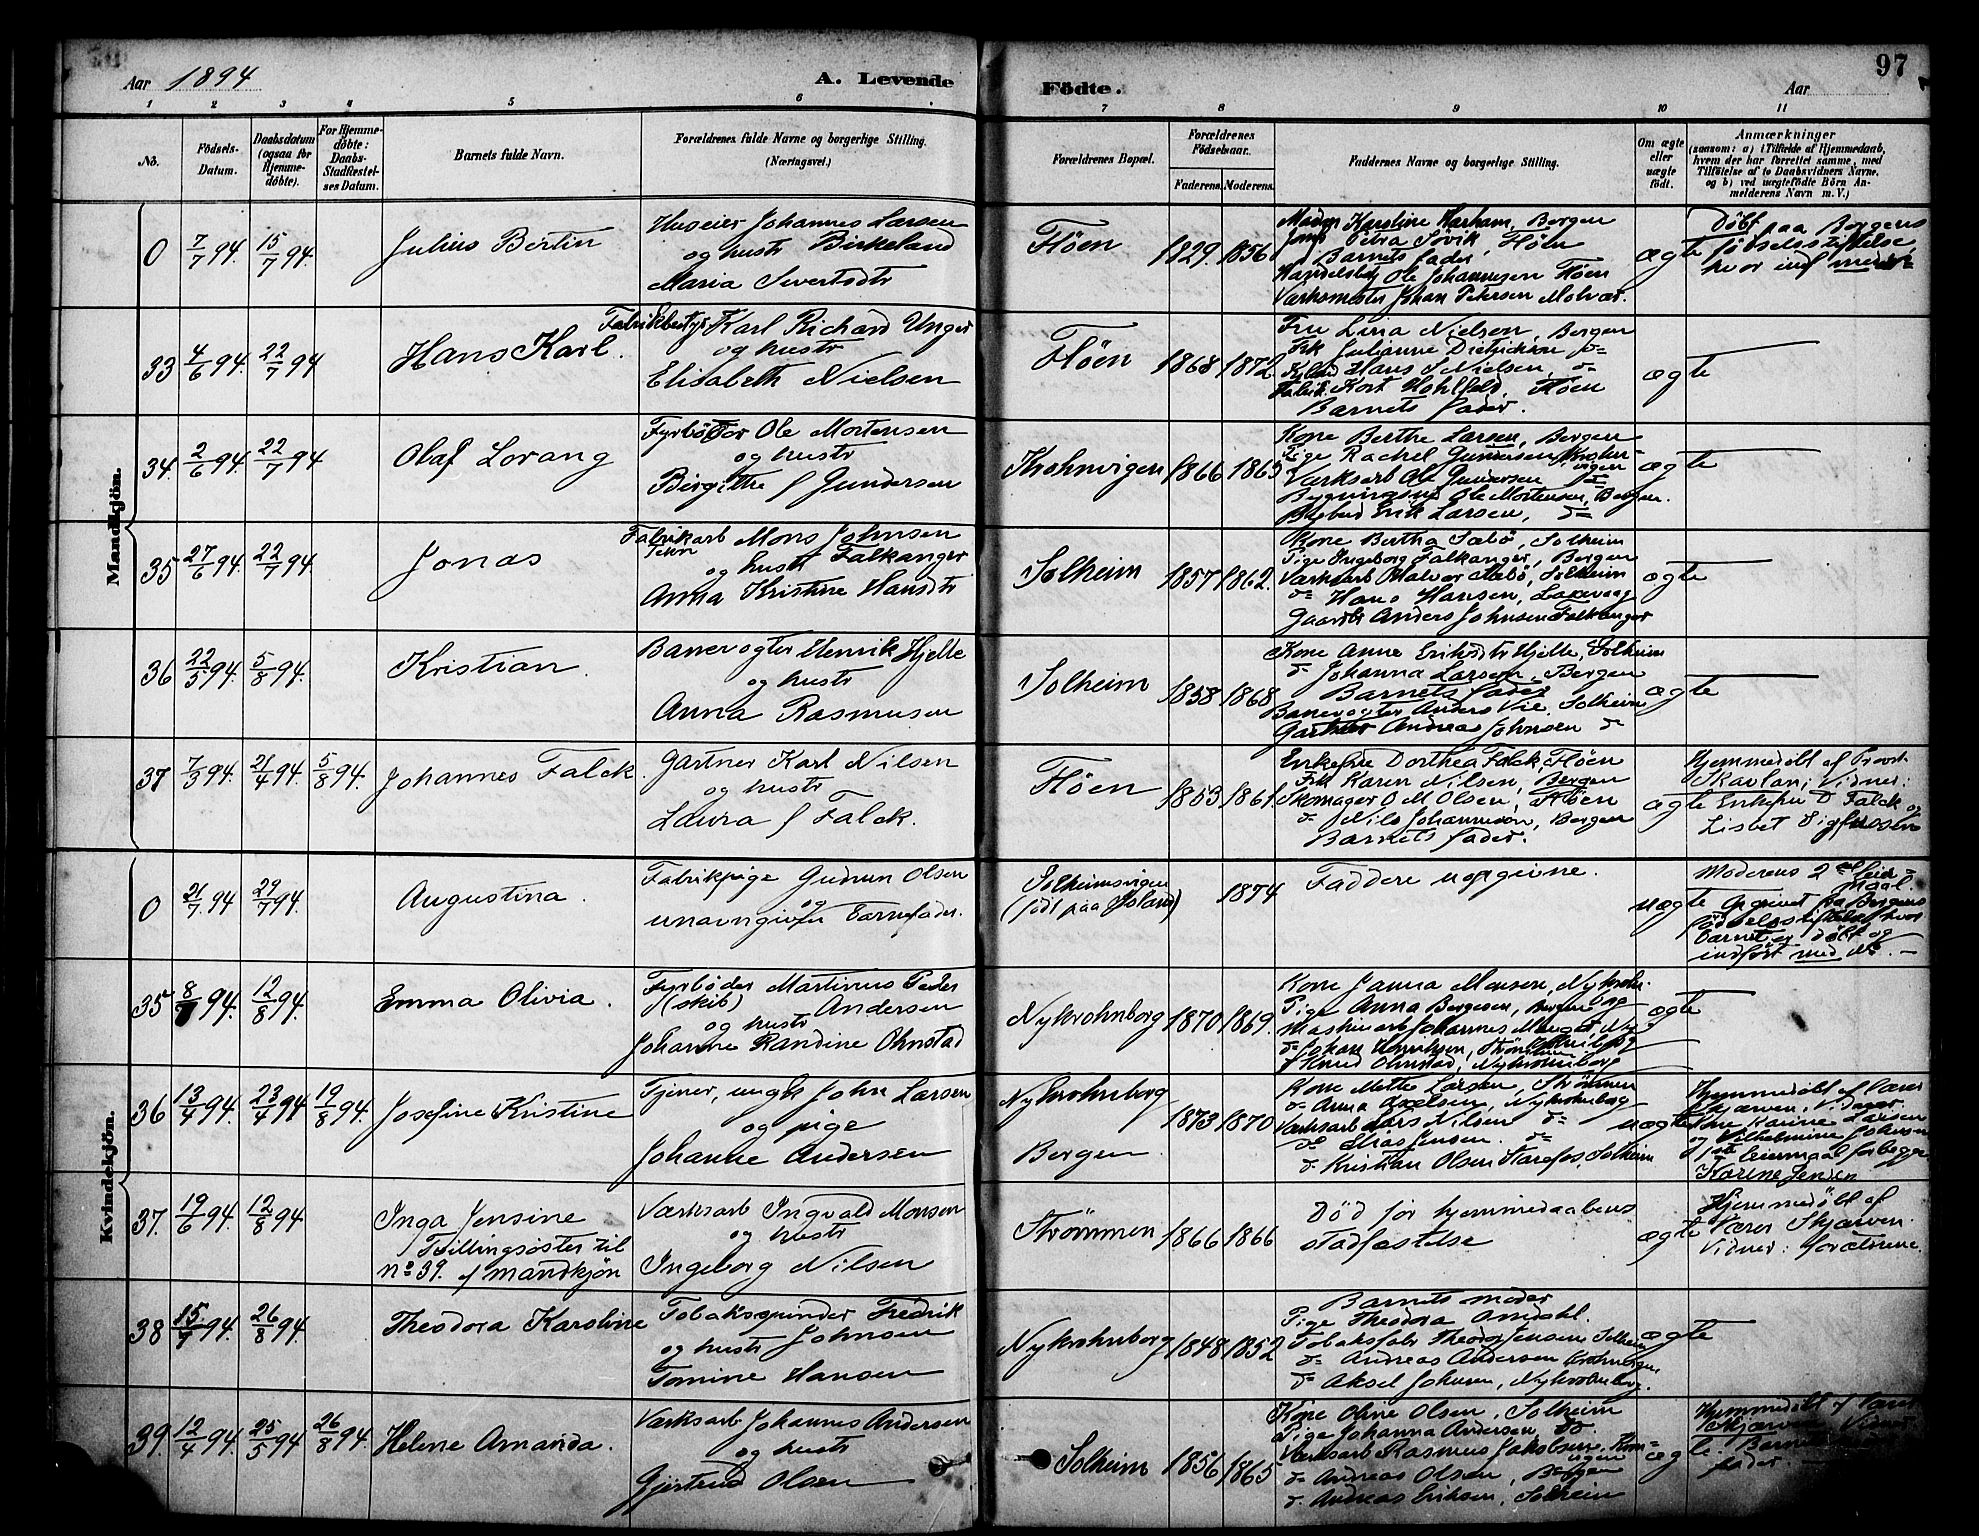 97
Aar 1894
A. Levende
Födte.
Aar
1 2 3 4 5 6 7 8 9 10 11
No.
Födsels-
Datum.
Daabsdatum
(ogsaa for
Hjemme-
döbte).
For Hjemme-
döbte:
Daabs-
Stadfæstel-
ses Datum.
Barnets fulde Navn.
Forældrenes fulde Navne og borgerlige Stilling.
(Næringsvei.)
Forældrenes Bopæl.
Forældrenes
Födselsaar.
Faderens. Moderens.
Faddernes Navne og borgerlige Stilling.
Om ægte
eller
uægte
födt.
Anmærkninger
(saasom: a) i Tilfælde af Hjemmedaab,
hvem der har forrettet samme, med
Tilföielse af to Daabsvidners Navne.
og b) ved uægtefödte Börn An-
melderens Navn m. V.)
Mandkjön.
0 7/7 94. 15/7 94.
Julius Bertin
Huseier Johannes Larsen
og hustr Birkeland
Maria Sivertsdtr
Flöen
1829. 1856
Karoline Harham, Bergen
Petra Sövik Flöen
Barnets fader
Ole Johannesen Flöen
Værksmester Johan Petersen Molvær.
ægte
Döbt paa Bergens
födselsstiftelse,
hvor indf
33 4/6 94. 22/7 94
Hans Karl.
Fabrikbestyr Karl Richard Unger
og hustr
Elisabeth Nielsen
Flöen
1868 1872
Fru Lina Nielsen, Bergen
Frk Julianne Dietrichson do
Hans S Nielsen, do
Kort Hohlfeld, Flöen
Barnets fader.
ægte
34. 2/6 94. 22/7 94
Olaf Lorang
Fyrböter Ole Mortensen
og hustr
Birgitte f Gundersen
Krohnvigen
1866 1865
Kone Berthe Larsen, Bergen
Pige Rachel Gundersen Krohnvigen
Værksarb Ole Gundersen do
Ole Mortensen, Bergen.
Erik Larsen, do
ægte
35 27/6 94. 22/7 94.
Jonas
Fabrikarb Mons Johnsen
og hustr Falkanger
Anna Kristine Hansdtr
Solheim
1857 1862.
Kone Bertha Sæbö, Solheim
Pige Ingeborg Falkanger, Bergen
Værksarb Halvor Sæbö, Solheim
do Hans Hansen, Laxevaag
Gaardbr Anders Johnsen Falkanger
ægte
36 22/5 94. 5/8 94.
Kristian.
Banevogter Henrik Hjelle
og hustr
Anna Rasmusen
Solheim
1858 1868
Kone Anne Eriksdtr Hjelle, Solheim
do Johanna Larsen, Bergen
Barnets fader
Banevogter Anders Vie, Solheim
Gartner Andreas Johnsen do
ægte
37 7/3 94. 21/4 94. 5/8 94.
Johannes Falck.
Gartner Karl Nilsen
og hustr
Laura f Falck.
Flöen
1853. 1861.
Enkefru Dorthea Falck, Flöen
Frk Karen Nilsen, Bergen
Skomager O M Olsen, Flöen
do Nils Johannesen, Bergen
Barnets fader.
ægte
Hjemmedöbt af Provst
Skavlan; Vidner:
Enkefru D Falck og
Lisbet Sigfussen
Kvindekjön.
0 21/7 94 29/7 94.
Augustina.
Fabrikpige Gudrun Olsen
og
unavngiven Barnefader.
Solheimsvigen
(födt paa Island)
1874
Faddere uopgivne.
uægte
Moderens 2det leier-
maal.
Opgivet fra Bergens
födselsstiftelse, hvor
barnet er döbt og
indfört med No. —
35 8/7 94. 12/8 94.
Emma Olivia.
Fyrböder Martinus Peder
(skib) Andersen
og hustr
Johanne Randine Ohnstad
Nykrohnborg
1870 1869.
Kone Janna Monsen, Nykrohnborg
Pige Anna Bergesen, Bergen
Maskinarb Johannes
do Johan Henriksen, Strömmen
Knud Ohnstad, Nykrohnborg
ægte
36 13/4 94. 23/4 94 19/8 94.
Josefine Kristine
Tjener, ungk John Larsen
og pige
Johanne Andersen
Nykrohnborg
Bergen
1873 1870
Kone Mette Larsen, Strömmen
do Anna Axelsen, Nykrohnborg
Værksarb Lars Nilsen do
do Elias Jensen. do
do Kristian Olsen Storefos, Solheim
uægte
Hjemmedöbt af Lærer
Skjærven, Vidner:
Karine Larsen
og Vilhelmine Johnsen
1ste leiermaal for begge
Karine Jensen
37. 19/6 94. 12/8 94
Inga Jensine
Tvillingsöster til
no 39. af mandkjön
Værksarb Ingvald Monsen
og hustr
Ingeborg Nilsen
Strömmen
1866 1866
Död för hjemmedaabens
stadfæstelse
ægte
Hjemmedöbt af
Lærer Skjærven.
Vidner: forældrene.
38 15/7 94. 26/8 94.
Theodora Karoline
Tobaksspinder Fredrik
og hustr Johnsen
Tomine Hansen
Nykrohnborg
1848 1852
Barnets moder
Pige Theodora Omdahl.
Tobaksfabr Theodor Jensen Solheim
do Andreas Andersen Krohnvigen
do Aksel Johnsen, Nykrohnborg.
ægte
39. 12/4 94. 25/5 94 26/8 94.
Helene Amanda.
Værksarb Johannes Andersen
og hustr
Gjertrud Olsen
Solheim
1856 1865
Kone Oline Olsen, Solheim
Pige Johanna Andersen, do
Værksarb Rasmus Jakobsen,
do Andreas Olsen, Bergen
do Andreas Eriksen, Solheim
ægte.
Hjemmedöbt af Lærer
Skjærven Vidner
Barnets
fader